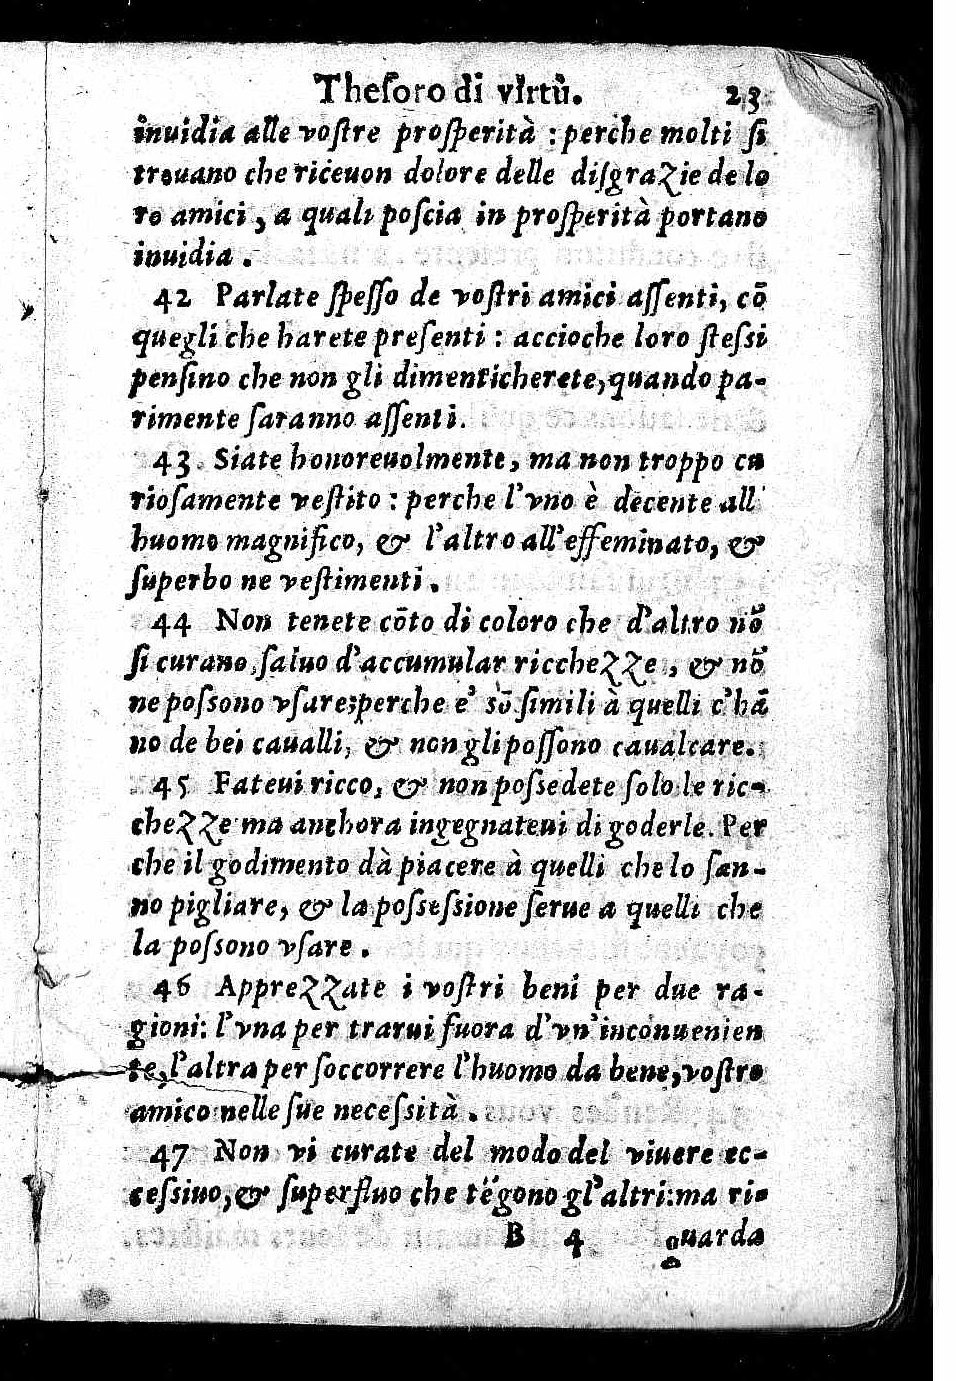 Theſoro di virtù. 23
inuidia alle voſtre proſperità : perche molti ſi
trouano che riceuon dolore delle diſgrazie de lo
ro amici, a quali poſcia in proſperità portano
inuidia.
42 Parlate ſpeſſo de voſtri amici aſſenti, cō
quegli che harete preſenti : accioche loro ſteſsi
penſino che non gli dimenticherete, quando pa-
rimente ſaranno aſſenti.
43. Siate honoreuolmente, ma non troppo cu
rioſamente veſtito : perche l'vno è decente all'
huomo magnifico, & l'altro all'effeminato, &
ſuperbo ne veſtimenti.
44 Non tenete cōto di coloro che d'altro nō
ſi curano, ſaluo d'accumular ricchezze, & nō
ne poſsono vſare; perche e' sō ſimili à quelli c'hā
no de bei caualli, & non gli poſſono caualcare.
45 Fateui ricco, & non poſsedete ſolo le ric-
chezze ma anchora ingegnateui di goderle. Per
che il godimento dà piacere à quelli che lo ſan-
no pigliare, & la poſseſsione ſerue a quelli che
la poſsono vſare.
46 Apprezzate i voſtri beni per due ra-
gioni: l'vna per trarui fuora d'vn'inconuenien
te, l'altra per ſoccorrere l'huomo da bene, voſtro
amico nelle ſue neceſsità.
47 Non vi curate del modo del viuere ec-
ceſsiuo, & ſuperfluo che tēgono gl'altri: ma ri-
B 4 guarda